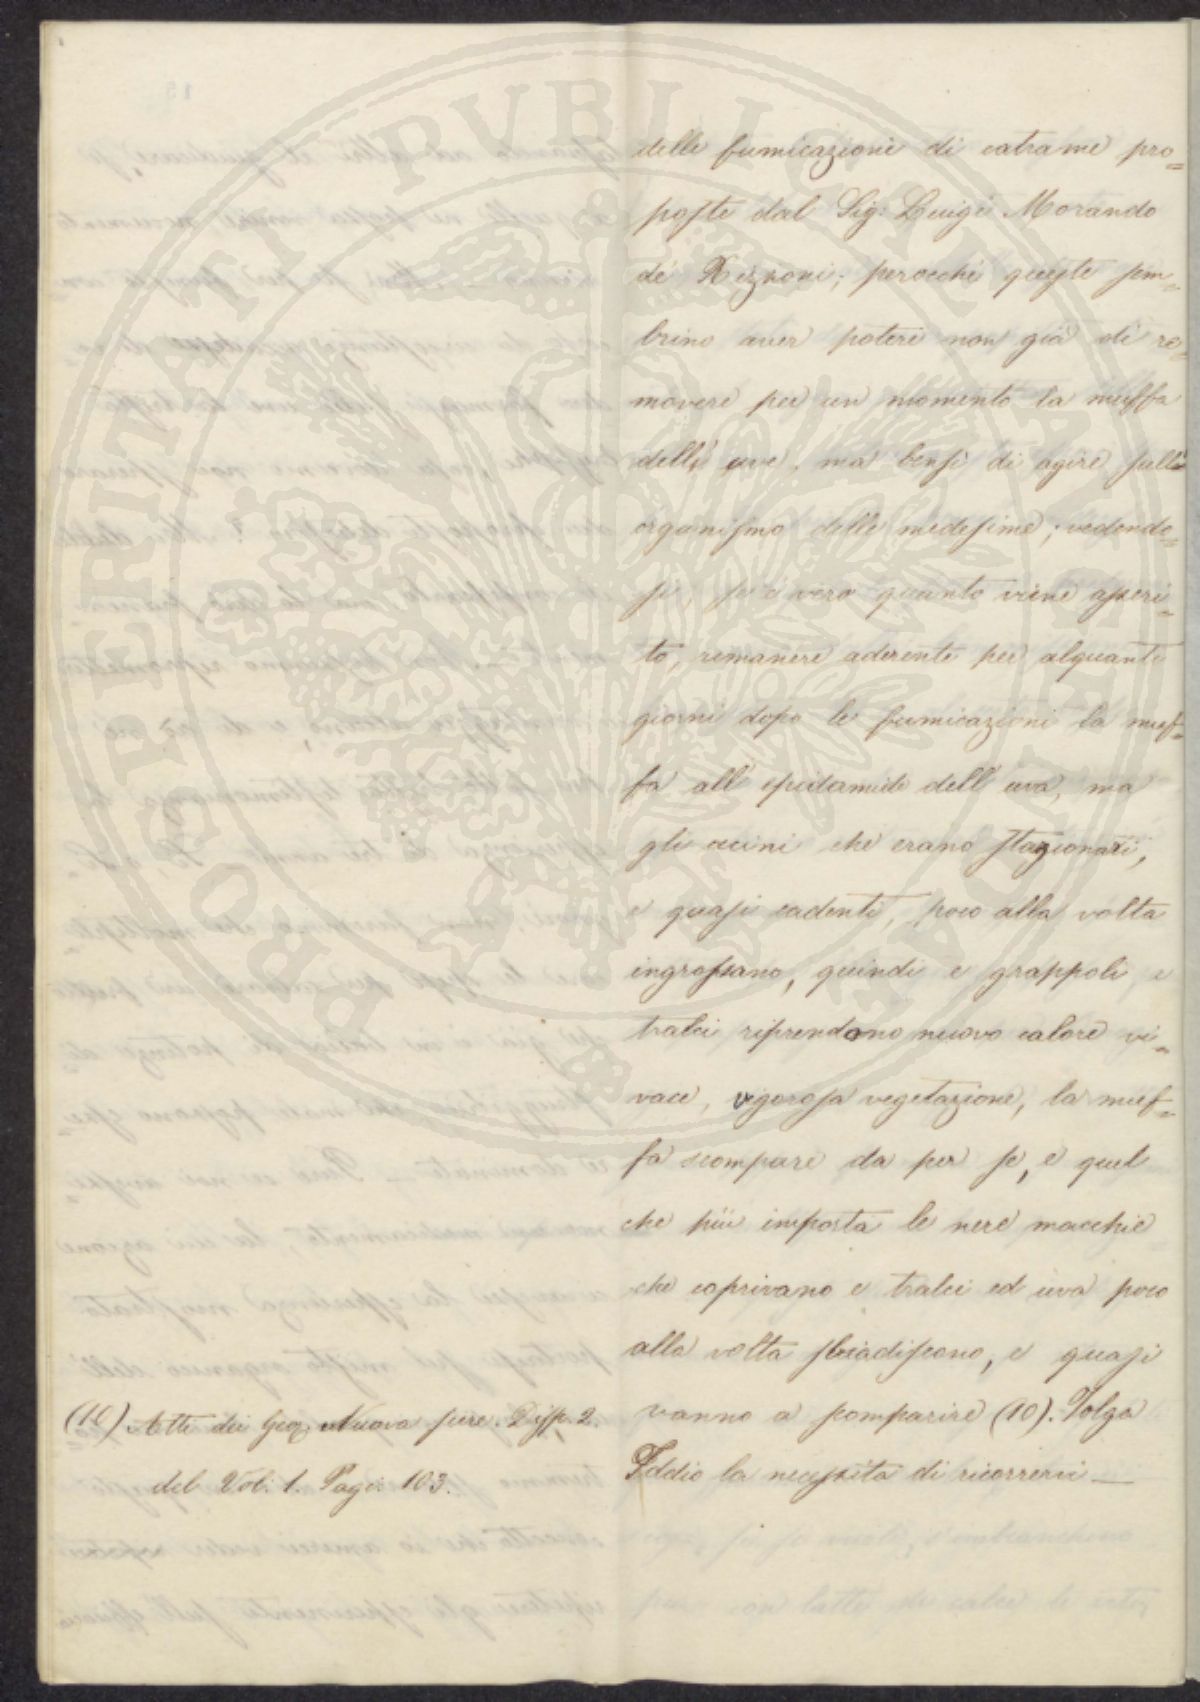 delle fumicazione di catrame pro=
poste dal Sig: Luigi Morando
de' Rizzoni; perocchè queste sem=
brino aver potere non già di re=
movere per un momento la muffa
delle uve, ma bensì di agire sull'
organismo delle medesime; vedendo=
si, se è vero quanto viene asseri=
to, rimanere aderente per alquanti
giorni dopo le fumicazioni la muf=
fa all' epidemide dell' uva, ma
gli acini che erano stazionari,
e quasi cadenti, poco alla volta
ingrossano, quindi e grappoli e
tralci riprendono nuovo calore vi=
vace, vigorosa vegetazione, la muf=
fa scompare da per se, e quel
che più importa le nere macchie
che coprivano e tralci ed uva poco
alla volta sbiadiscono, e quasi
vanno a scomparire (10). Tolga
Iddio la necessità di ricorrervi —
(10) Atti dei Geo. Nuova serie. Disp. 2.
del Vol: 1. Pag: 103.
PROSPERITATI PVBLICAE AVGENDAE